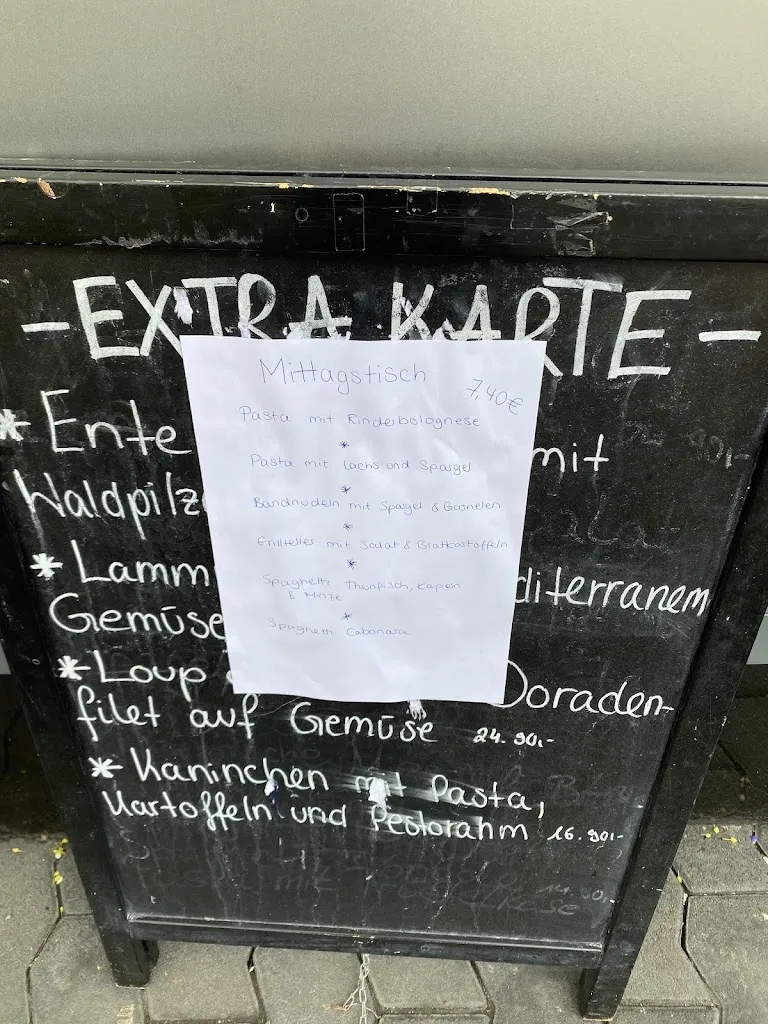 - EXTRA KARTE -
Mittagstisch 7,40€
Pasta mit Rinderbolognese
*
Pasta mit Lachs und Spargel
*
Bandnudeln mit Spargel & Garnelen
*
Grillteller mit Salat & Bratkartoffeln
*
Spaghetti Thunfisch, Kapern
& Minze
*
Spaghetti Cabonara
* Ente mit
Waldpilz
* Lamm diterranem
Gemüse
* Loup Doraden-
filet auf Gemüse 24.90,-
* Kaninchen mit Pasta,
Kartoffeln und Pestorahm 16.90,-